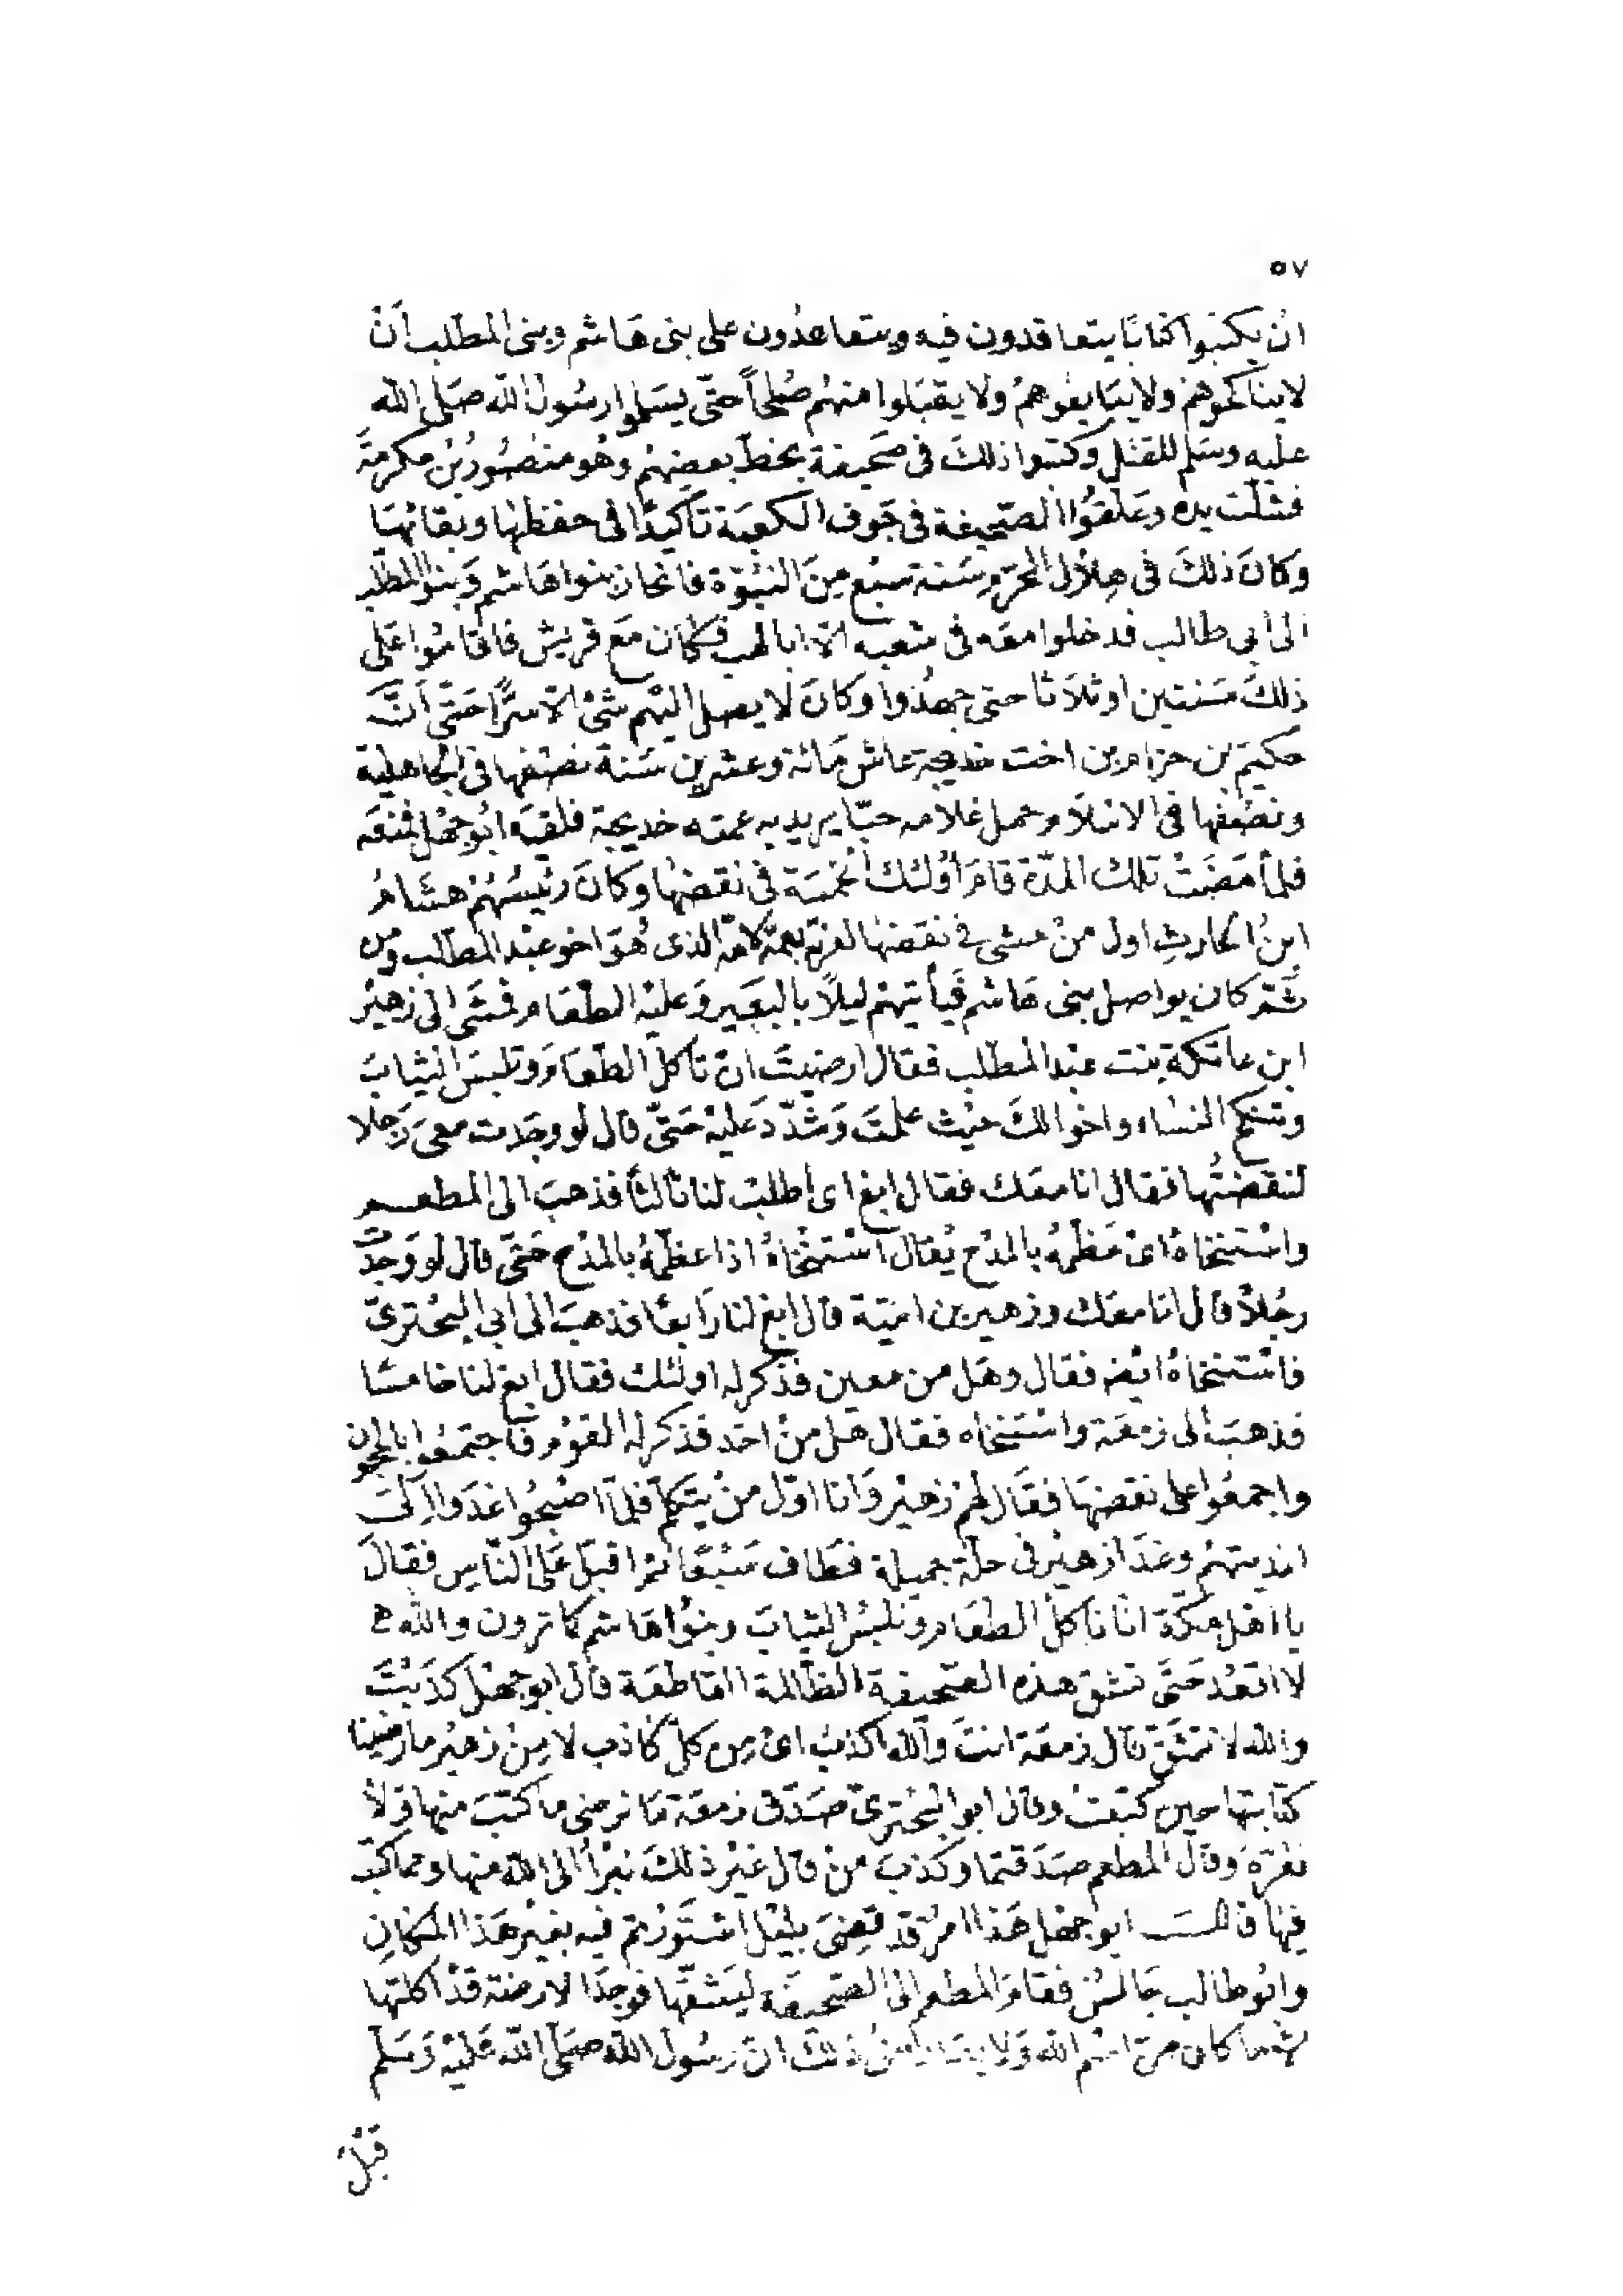 ٥٧
ان يكتبوا كتابا يتعاقدون فيه ويتعاهدون على بنى هاشم وبنى المطلب أن
لا يناكحوهم ولا يبايعوهم ولا يقبلوا منهم صلحاً حتّى يسلموا رسول اللّه صلى الله
عليه وسلم للقتل وكتبوا ذلك فى صحيفة بخط بعضهم وهو منصور بن عكرمة
فشلت يده وعلقوا الصحيفة فى جوف الكعبة تاكيدًا فى حفظها وبقائها
وكان ذلك فى هلال المحرّم سنة سبع من النبوّة فانحاز بنوا هاشم وبنوا المطلب
الى ابى طالب فدخلوا معه فى شعبه الا ابا لهب فكان مع قريش فاقاموا على
ذلك سنتين او ثلاثا حتى جهدوا وكان لا يصل اليهم شئ الّا سرًّا حتّى أنّ
حكيم بن حزام بن اخت خديجة عاش مائة وعشرين سنة نصفها فى الجاهلية
ونصفها فى الاسلام حمل غلامه حبّا يريد به عمته خديجة فلقيه ابو جهل فمنعه
فلما مضت تلك المدّة قام أولئك الخمسة فى نقضها وكان رئيسهم هشام
ابن الحارث اول من مشى فى نقضها لعزته بعمّه لامّه الذى هو اخو عبد المطلب ومن
ثمّ كان يواصل بنى هاشم فيأتيهم ليلاً بالبعير وعليه الطعام فمشى الى زهير
ابن عاتكة بنت عبد المطلب فقال ارضيت ان تأكل الطعام وتلبس الثياب
وتنكح النساء واخوالك حيث علمت وشدّد عليه حتّى قال لو وجدت معى رجلا
لنقضتها فقال انا معك فقال ابغ اى اطلب لنا ثالثاً فذهب الى المطعم
واستنخاه اى عظمه بالمدح يقال استنخاه اذا عظمه بالمدح حتّى قال لو وجدت
رجلاً قال انا معك وزهير بن امية قال ابغ لنا رابعًا فذهب الى ابى البخترىّ
فاستنخاه ايضه فقال وهل من معين فذكر له اولئك فقال ابغ لنا خامسًا
فذهب الى زمعة واستنخاه فقال هل من احد فذكر له القوم فاجتمعوا بالحجون
واجمعوا على نقضها فقال لهم زهير وانا اوّل من يتكلم فلما اصبحوا غدوا الى
انديتهم وغدا زهير فى حلّة جميلة فطاف سبعًا ثم اقبل على النّاس فقال
يا اهل مكّة انا ناكل الطعام ونلبس الثياب وبنوا هاشم كما ترون والله
لا اقعد حتّى تشق هذه الصحيفة الظالمة القاطعة قال ابو جهل كذبت
والله لا تشقّ قال زمعة انت والله اكذب اى من كل كاذب لا من زهير ما رضينا
كتابتها حين كتبت وقال ابو البخترىّ صدق زمعة ما نرضى ما كتب منها ولا
نقرّه وقال المطعم صدقتما وكذب من قال غير ذلك نبرأ الى الله منها ومما كتب
فيها قال ابو جهل هذا امر قد قضى بليل اشتورتم فيه بغير هذا المكان
وابو طالب جالس فقام المطعم الى الصحيفة ليشقّها فوجد الارضة قد اكلتها
كان من اسم الله ولا ذلك ان رسول الله صلى الله عليه وسلم
قبل